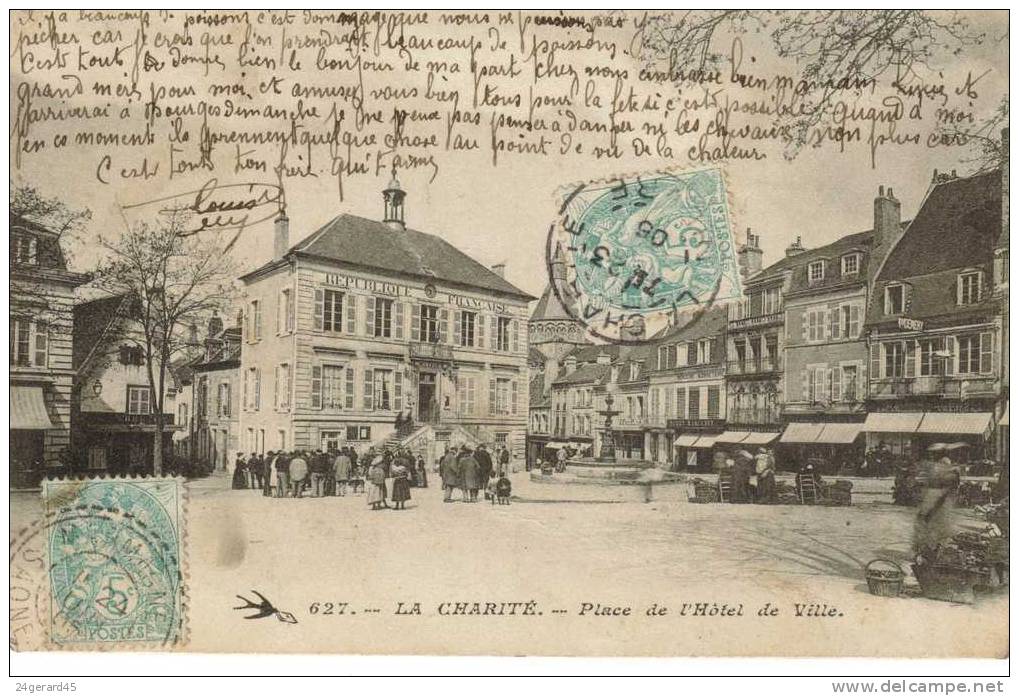 il y a beaucoup de poissons c'est dommage que nous ne pensions pas y
pêcher car je crois que l'on prendrait beaucoup de poissons.
C'est tout donne bien le bonjour de ma part chez nous embrasse bien maman et
grand mère pour moi et amusez vous bien tous pour la fête si c'est possible Quand à moi
j'arriverai à Bourges dimanche je ne peux pas penser à danser ni les chevaux non plus car
en ce moments ils prennent quelque chose au point de vue de la chaleur
C'est tout ton frère qui t'aime
Louis
RÉPUBLIQUE FRANÇAISE
POSTES
LA CHARITÉ
23
05
5c
POSTES
22
SAONE
627. -- LA CHARITÉ. -- Place de l'Hôtel de Ville.
24gerard45
www.delcampe.net